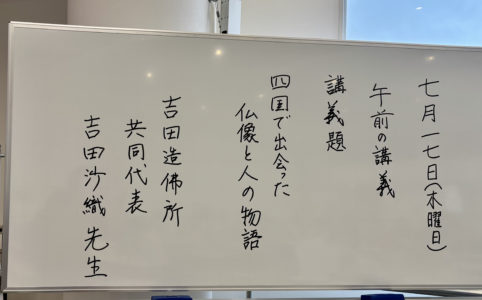 七月一七日(木曜日)
午前の講義
講義題
四国で出会った
仏像と人の物語
吉田造佛所
共同代表
吉田沙織先生